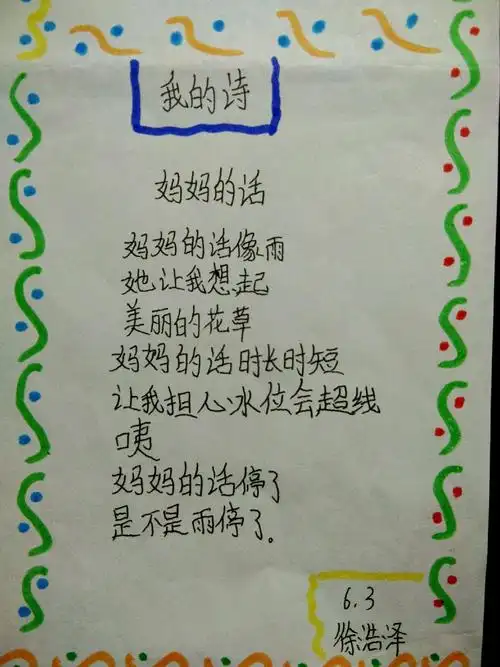 我的诗
妈妈的话
妈妈的话像雨
她让我想起
美丽的花草
妈妈的话时长时短
让我担心水位会超线
咦
妈妈的话停了
是不是雨停了。
6.3
徐浩泽